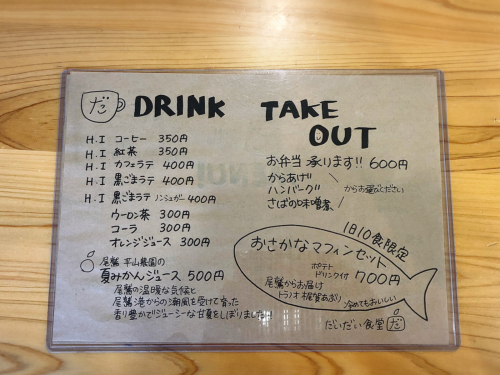 だ DRINK
H.I コーヒー 350円
H.I 紅茶 350円
H.I カフェラテ 400円
H.I 黒ごまラテ 400円
H.I 黒ごまラテ ノンシュガー 400円
ウーロン茶 300円
コーラ 300円
オレンジジュース 300円
尾鷲 平山農園の
夏みかんジュース 500円
尾鷲の温暖な気候と
尾鷲港からの潮風を受けて育った
香り豊かでジューシーな甘夏をしぼりました!!
TAKE
OUT
お弁当 承ります!! 600円
からあげ
ハンバーグ
さばの味噌煮
からお選びください
1日10食限定
おさかなマフィンセット
ポテト
ドリンク付 700円
尾鷲からお届け
トラノオ 梶賀あぶり
冷めてもおいしい
だいだい食堂 だ